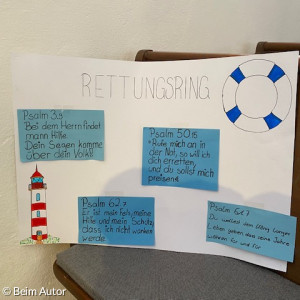 RETTUNGSRING
Psalm 3,9
Bei dem Herrn findet
mann Hilfe.
Dein Segen komme
über dein Volk!!
Psalm 50,15
"Rufe mich an in
der Not, so will ich
dich erretten,
und du sollst mich
preisen"
Psalm 62,7
Er ist mein Fels, meine
Hilfe und mein Schutz,
dass ich nicht wanken
werde
Psalm 61,7
Du wollest dem König langes
Leben geben dass seine Jahre
währen für und für
© Beim Autor